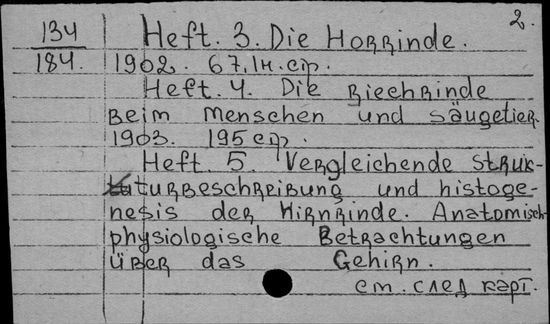 2.
134 Heft. 3. Die Horrinde.
184. 1902. 67, IH. стр.
Heft. 4. Die Riechrinde
Beim Menschen und säugetier.
1903. 195 стр.
Heft. 5. Vergleichende struk-
turbeschreibung und histoge-
nesis der Hirnrinde. Anatomisch-
physiologische Betrachtungen
über das Gehirn.
см. след карт.